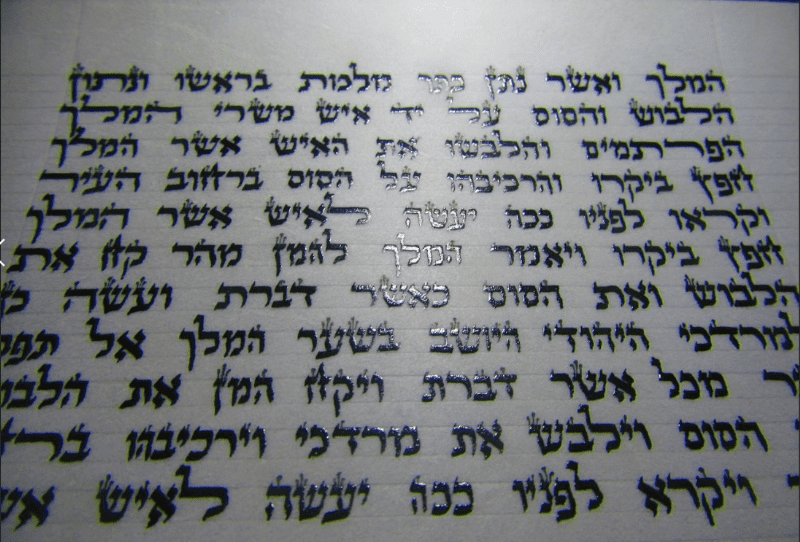 המלך ואשר נתן כתר מלכות בראשו ונתון
הלבוש והסוס על יד איש משרי המלך
הפרתמים והלבשו את האיש אשר המלך
חפץ ביקרו והרכיבהו על הסוס ברחוב העיר
וקראו לפניו ככה יעשה לאיש אשר המלך
חפץ ביקרו ויאמר המלך להמן מהר קח את
הלבוש ואת הסוס כאשר דברת ועשה
למרדכי היהודי היושב בשער המלך אל
מכל אשר דברת ויקח המן את
הסוס וילבש את מרדכי וירכיבהו
ויקרא לפניו ככה יעשה לאיש